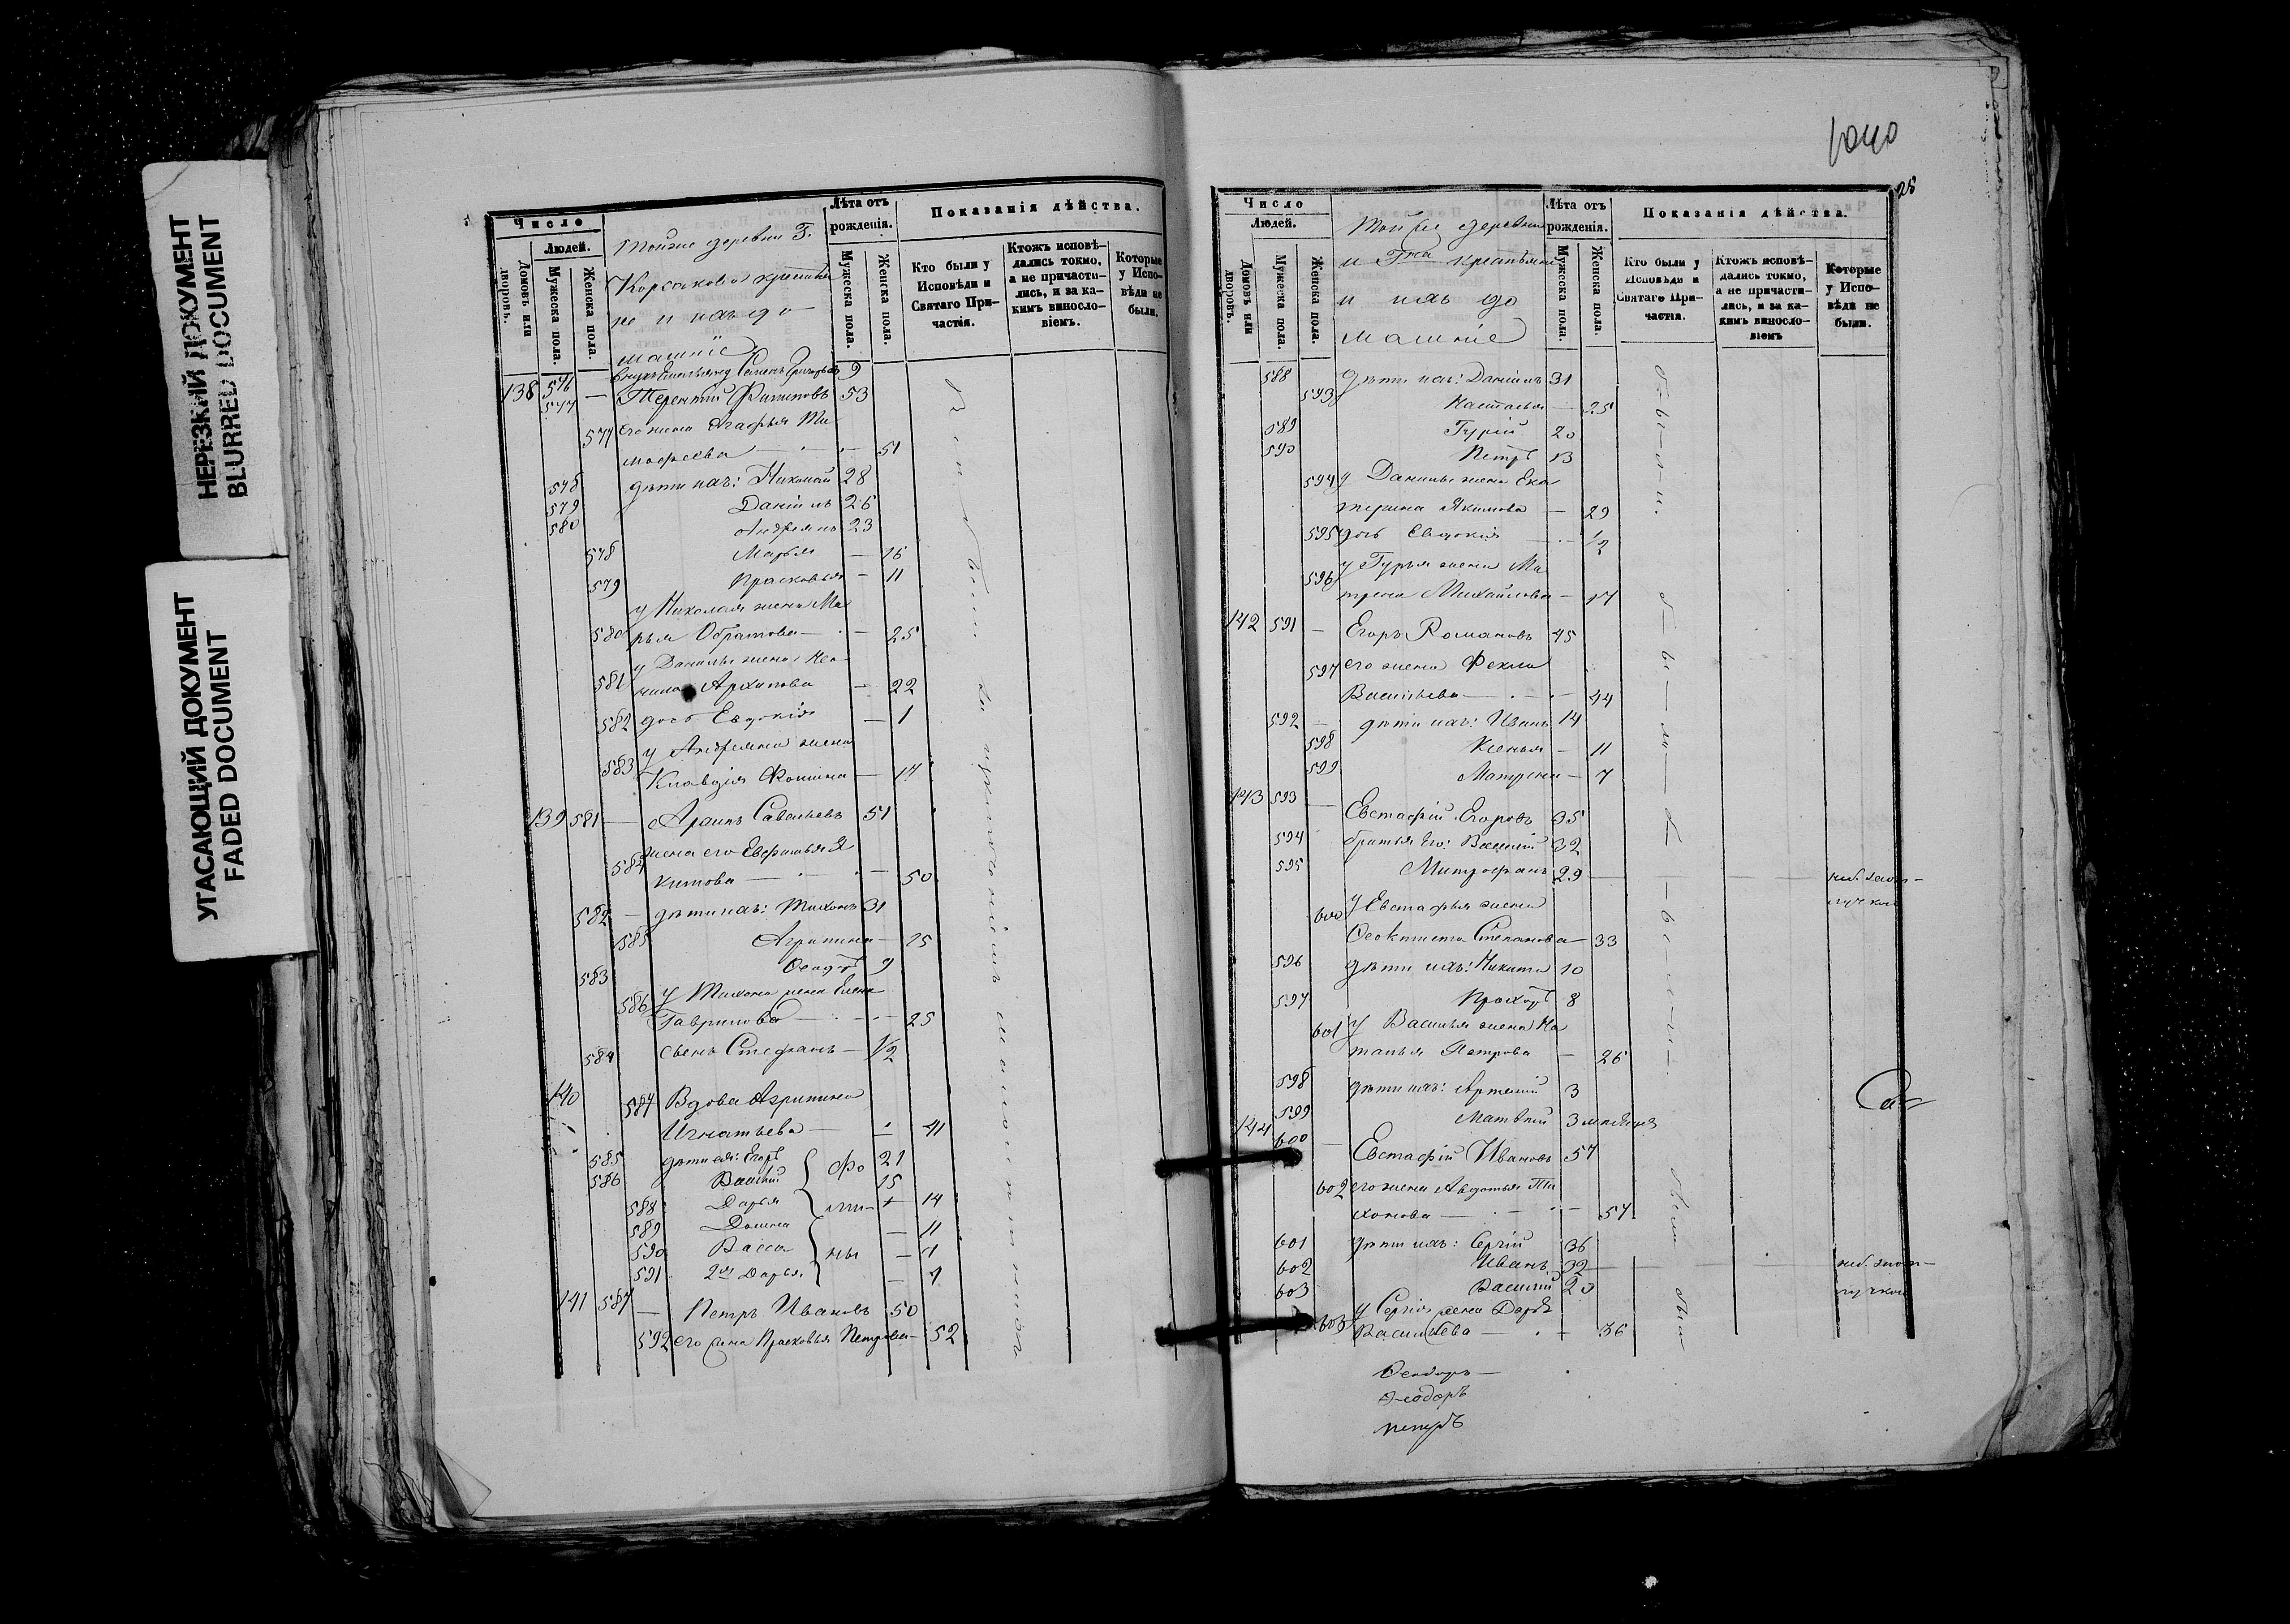 НЕРЕЗКИЙ ДОКУМЕНТ
BLURRED DOCUMENT
УГАСАЮЩИЙ ДОКУМЕНТ
FADED DOCUMENT
Число
Людей.
Домовъ или дворовъ.
Мужеска пола.
Женска пола.
Тойже деревни Г.
Корсакова крестья
не и ихъ до
машніе
Лѣта отъ рожденія.
Мужеска пола.
Женска пола.
Показанія дѣйства.
Кто были у Исповѣди и Святаго Причастія.
Ктожъ исповѣдались токмо, а не причастились, и за какимъ винословіемъ.
Которые у Исповѣди не были.
576 внукъ Семенъ Григорьевъ 9
138 577 — Терентій Филиповъ 53
577 его жена Агафья Ти
мофеева — 51
578 дѣти ихъ: Николай 28
579 Даніилъ 26
580 Андреянъ 23
578 Марья — 16
579 Прасковья — 11
у Николая жена Ма
580 рья — 25
у Данилы жена Нео
581 нила Архипова — 22
582 дочь Евдокія — 1
у Андреяна жена
583 Клавдія Фомина — 17
139 581 — Савельевъ 51
584 жена его
50
582 — дѣти ихъ: Тихонъ 31
585 Агрипина — 15
583 Ѳеодоръ 9
586 у Тихона жена Елена
Гаврилова — 25
584 сынъ Стефанъ — 1/2
140 587 Вдова Агрипина
Игнатьева — 41
585 дѣти ея: Егоръ 21
586 Василій 15
588 Дарья 14
589 Домна — 11
590 Васса
591 2я Дарья
141 587 — Петръ Ивановъ 50
592 его жена Прасковья Петрова — 52
1040
25
Число
Людей.
Домовъ или дворовъ.
Мужеска пола.
Женска пола.
Той же деревни
и Гна крестьяне
и ихъ до
машніе
Лѣта отъ рожденія.
Мужеска пола.
Женска пола.
Показанія дѣйства.
Кто были у Исповѣди и Святаго Причастія.
Ктожъ исповѣдались токмо, а не причастились, и за какимъ винословіемъ
Которые у Исповѣди не были.
588 дѣти ихъ: Даніилъ 31
593 Настасья — 25
589 Гурій 20
590 Петръ 13
594 у Данилы жена Ека
терина Якимова — 29
595 дочь Евдокія 1/2
596 у Гурья жена Ма
трена Михайлова — 17
142 591 — Егоръ Романовъ 45
597 его жена Фекла
Васильева — 44
592 — дѣти ихъ: Иванъ 14
598 Ксенья — 11
599 Матрена — 7
143 593 — Евстафій Егоровъ 35
594 братья его: Василій 32
595 Митрофанъ 29
600 у Евстафья жена
Ѳеоктиста Степанова — 33
596 дѣти ихъ: Никита 10
597 Прохоръ 8
601 у Василья жена На
талья Петрова — 26
598 дѣти ихъ: Артемій 3
599 Матвѣй 3 мѣсяца
144 600 — Евстафій Ивановъ 57
602 его жена Авдотья Ти
хонова — 57
601 дѣти ихъ: Сергій 36
602 Иванъ 32
603 Василій 20
603 у Сергія жена Дарья
Васильева — 36
Ѳеодоръ
Петръ